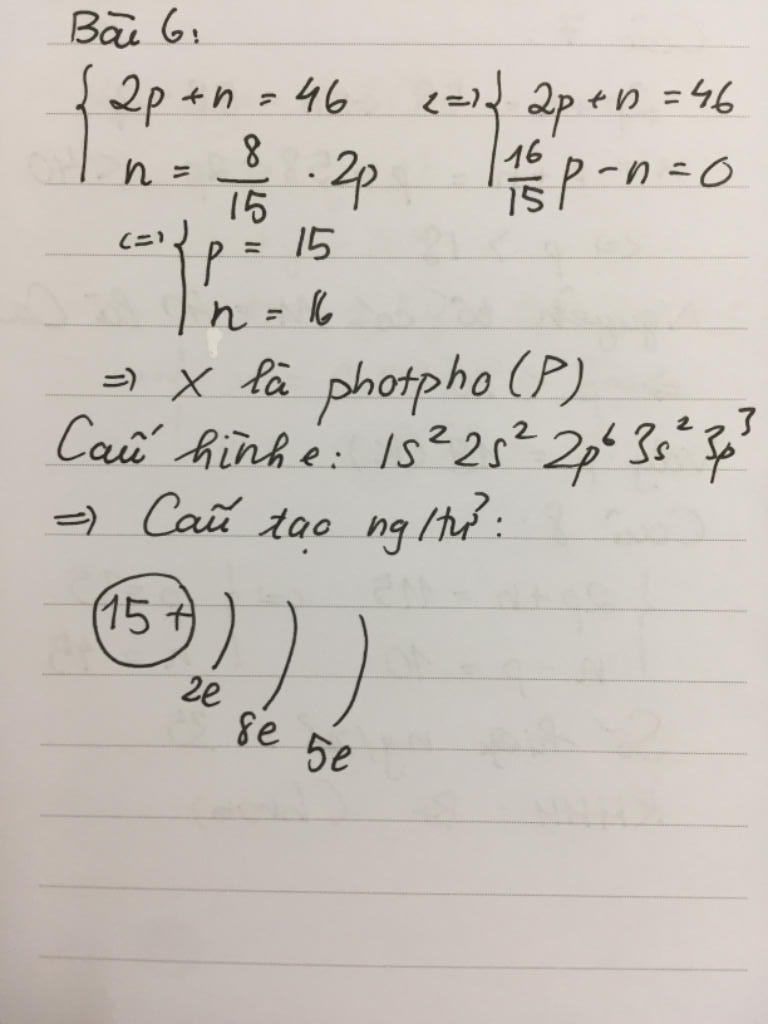 Bài 6:
{ 2p + n = 46 <=> { 2p + n = 46
n = 8/15 . 2p 16/15 p - n = 0
<=> { p = 15
n = 16
=> X là photpho (P)
Cấu hình e: 1s² 2s² 2p⁶ 3s² 3p³
=> Cấu tạo ng/tử:
15+ ) ) )
2e
8e
5e